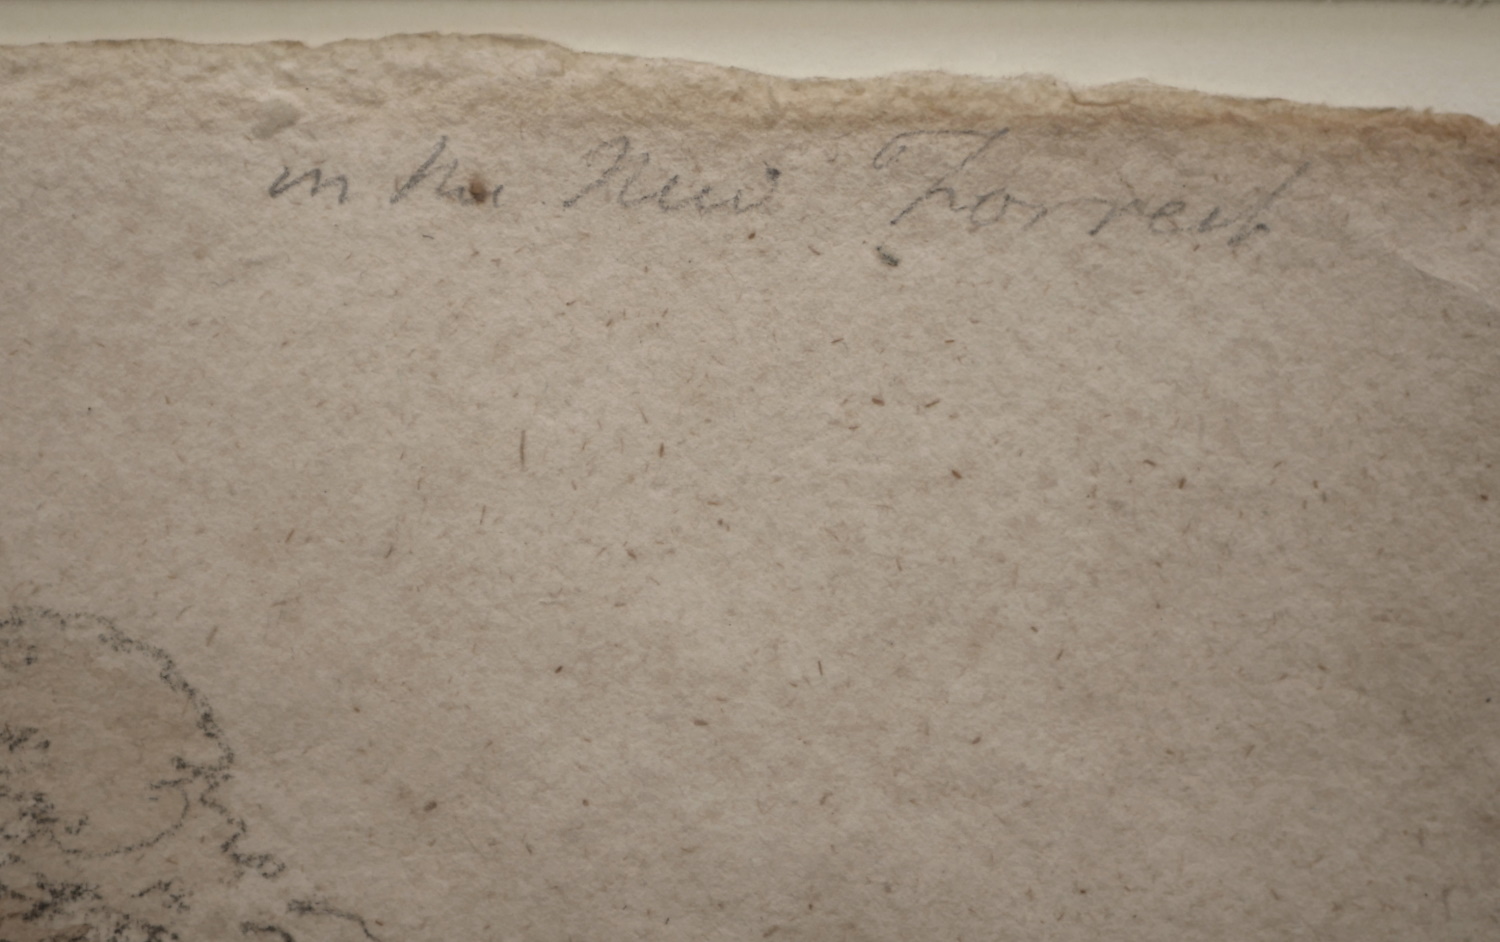 in the New Forrest